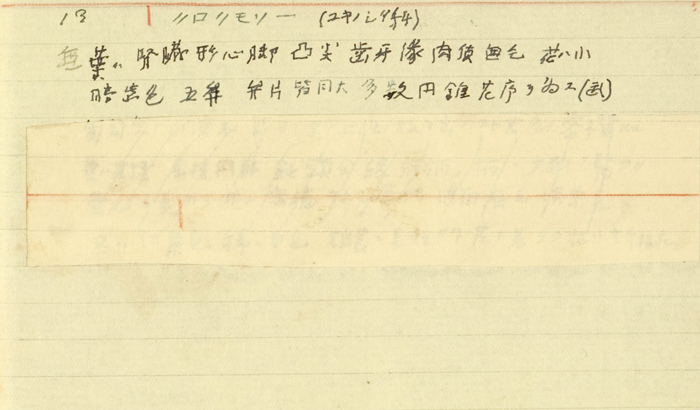 13 ソロリモリー (ユキノシタ科)
葉ハ 腎臓形心脚 凸尖 歯牙縁 肉質無毛 花ハ小
暗紫色 五弁 弁片皆同大 多数円錐花序ヲ為ス(図)